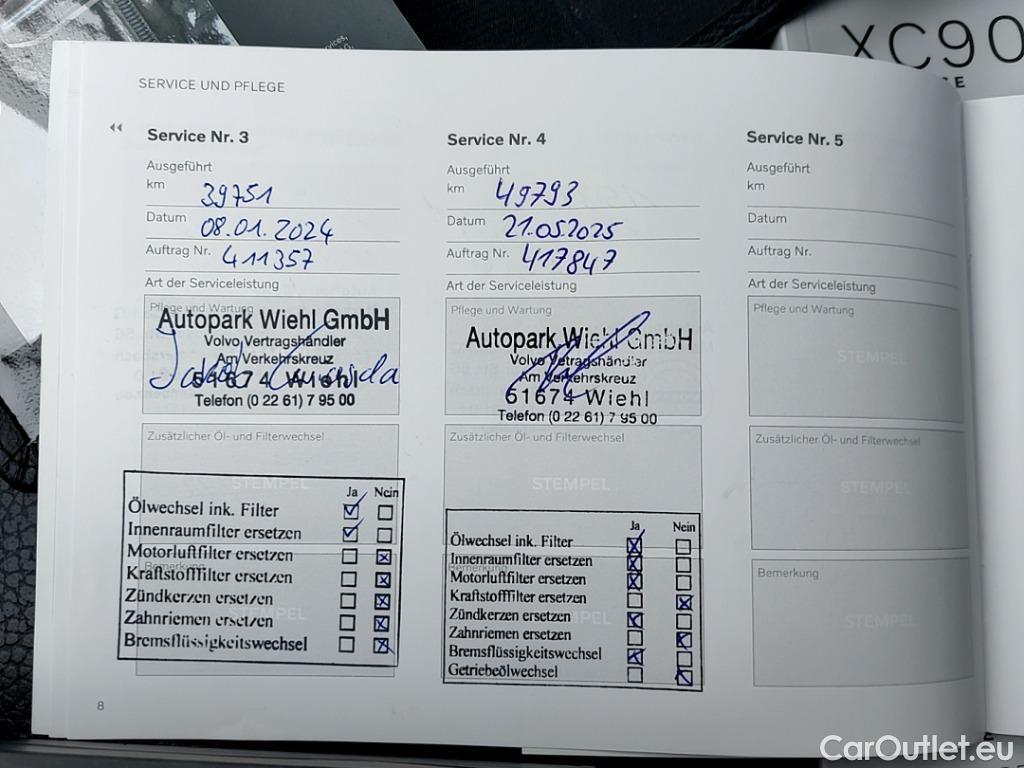 XC90
SERVICE UND PFLEGE
Service Nr. 3
Ausgeführt
km 39751
Datum 08.01.2024
Auftrag Nr. 411357
Art der Serviceleistung
Pflege und Wartung
Autopark Wiehl GmbH
Volvo Vertragshändler
Am Verkehrskreuz
51674 Wiehl
Telefon (0 22 61) 7 95 00
Zusätzlicher Öl- und Filterwechsel
STEMPEL
Ja Nein
Ölwechsel ink. Filter
Innenraumfilter ersetzen
Motorluftfilter ersetzen
Kraftstofffilter ersetzen
Zündkerzen ersetzen
Zahnriemen ersetzen
Bremsflüssigkeitswechsel
Bemerkung
STEMPEL
Service Nr. 4
Ausgeführt
km 49793
Datum 21.05.2025
Auftrag Nr. 417847
Art der Serviceleistung
Pflege und Wartung
Autopark Wiehl GmbH
Volvo Vetragshändler
Am Verkehrskreuz
51674 Wiehl
Telefon (0 22 61) 7 95 00
Zusätzlicher Öl- und Filterwechsel
STEMPEL
Ja Nein
Ölwechsel ink. Filter
Innenraumfilter ersetzen
Bemerkung
Motorluftfilter ersetzen
Kraftstofffilter ersetzen
Zündkerzen ersetzen
STEMPEL
Zahnriemen ersetzen
Bremsflüssigkeitswechsel
Getriebeölwechsel
Service Nr. 5
Ausgeführt
km
Datum
Auftrag Nr.
Art der Serviceleistung
Pflege und Wartung
STEMPEL
Zusätzlicher Öl- und Filterwechsel
STEMPEL
Bemerkung
STEMPEL
8
CarOutlet.eu